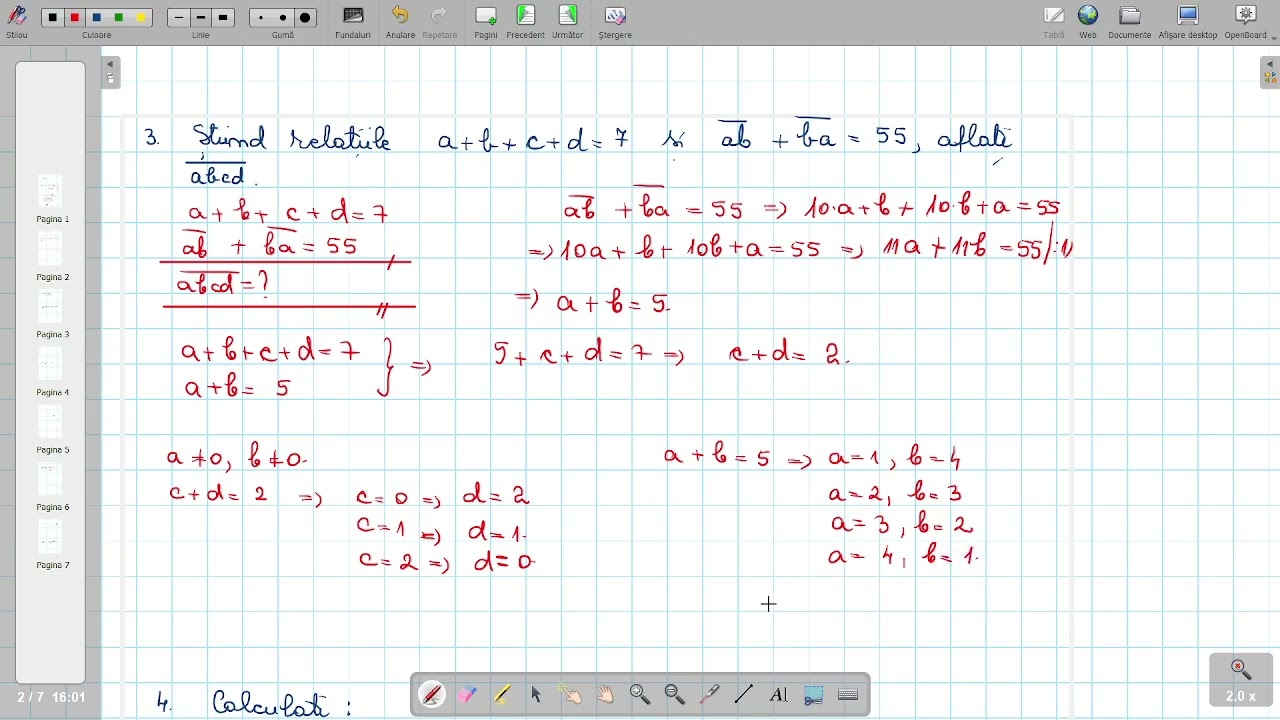 Stilou Culoare Linie Gumă Fundaluri Anulare Repetare Pagini Precedent Următor Ștergere Tablă Web Documente Afișare desktop OpenBoard
3. Știind relațiile a+b+c+d=7 și \overline{ab} + \overline{ba} = 55, aflați
\overline{abcd}.
a+b+c+d=7
\overline{ab} + \overline{ba} = 55
\overline{abcd} = ?
\overline{ab} + \overline{ba} = 55 => 10·a+b+10·b+a=55
=> 10a+b+10b+a=55 => 11a+11b=55/:11
=> a+b=5.
a+b+c+d=7
a+b=5 } =>
5+c+d=7 => c+d=2.
a≠0, b≠0.
c+d=2 => c=0 => d=2
c=1 => d=1.
c=2 => d=0
a+b=5 => a=1, b=4
a=2, b=3
a=3, b=2
a=4, b=1.
4. Calculați:
Pagina 1
Pagina 2
Pagina 3
Pagina 4
Pagina 5
Pagina 6
Pagina 7
2 / 7 16:01
AI
2.0 x